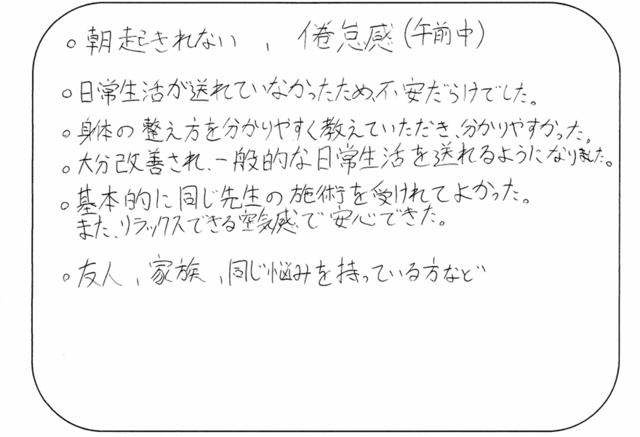 ○ 朝起きれない 、 倦怠感(午前中)
○ 日常生活が送れていなかったため、不安だらけでした。
○ 身体の整え方を分かりやすく教えていただき、分かりやすかった。
○ 大分改善され、一般的な日常生活を送れるようになりました。
○ 基本的に同じ先生の施術を受けれてよかった。
また、リラックスできる空気感で安心できた。
○ 友人 、家族 、同じ悩みを持っている方など